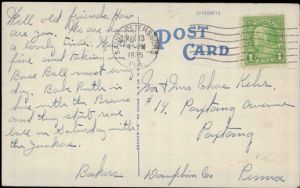 Well old friends. How
are you. We are having
a lovely time. Weather
fine and taking
Base Ball most every
day. Babe Ruth is
here with the Braves
and they start base
ball on Saturday with
the Yankees.
Bakers
ST. PETERSBURG
MAR 13
4 PM
1935
POST
CARD
1 CENT 1
Mr & Mrs Chas Kehr
#19, Paxtang Avenue
Paxtang
Dauphin Co. Penna